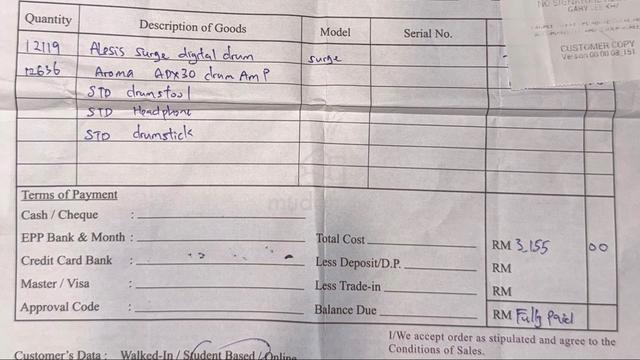 NO SIGNATURE
GARY LEE KHI
CUSTOMER COPY
Quantity Description of Goods Model Serial No.
12119 Alesis surge digital drum surge
12636 Aroma ADX30 drum AMP
STD drumstool
STD Headphone
STD drumstick
Terms of Payment
Cash / Cheque :
EPP Bank & Month : Total Cost RM 3,155 00
Credit Card Bank : Less Deposit/D.P. RM
Master / Visa : Less Trade-in RM
Approval Code : Balance Due RM Fully Paid
I/We accept order as stipulated and agree to the
Conditions of Sales.
Customer's Data : Walked-In / Student Based / Online